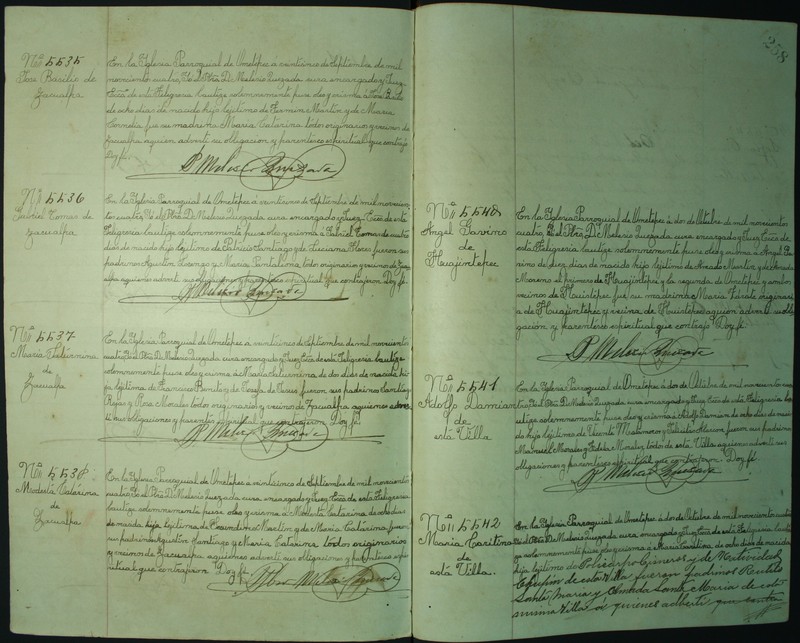 Nº 5535
José Basilio de
Zacualpa
En la Yglesia Parroquial de Ometepec a veintiuno de Septiembre de mil
novecientos cuatro, Yó el Pbro. D. Melesio Quezada cura encargado y Juez
Ecco. de esta Feligresia bautizé solemnemente puse oleo y crisma á José Basilio
de ocho dias de nacido hijo legitimo de Fermin Martin y de Maria
Cornelia fué su madrina Maria Catarina todos originarios y vecinos de
Zacualpa a quien advertí su obligacion y parentesco espiritual que contrajo
Doy fe.
P. Melesio Quezada
Nº 5536
Gabriel Tomas de
Zacualpa
En la Yglesia Parroquial de Ometepec á veintiuno de Septiembre de mil novecien
tos cuatro, Yó el Pbro. D. Melesio Quezada cura encargado y Juez Ecco. de esta
Feligresia bautizé solemnemente puse oleo y crisma á Gabriel Tomas de cuatro
dias de nacido hijo legitimo de Patricio Santiago y de Luciana Flores fueron sus
padrinos Agustin Lorenzo y Maria Pantaliona todos originarios y vecinos de Zacu
alpa a quienes advertí sus obligaciones y parentesco espiritual que contrajeron Doy fe.
P. Melesio Quezada
Nº 5537
Maria
de
Zacualpa
En la Yglesia Parroquial de Ometepec a veintiuno de Septiembre de mil novecientos
cuatro Yó el Pbro. D. Melesio Quezada cura encargado y Juez Ecco. de esta Feligresia bautizé
solemnemente puse oleo y crisma á Maria de dos dias de nacida hi
ja legitima de Francisco Benito y de Josefa de Jesus fueron sus padrinos Santiago
Rojas y Rosa Morales todos originarios y vecinos de Zacualpa a quienes adver
tí sus obligaciones y parentesco espiritual que contrajeron Doy fe.
P. Melesio Quezada
Nº 5538
Modesta Catarina
de
Zacualpa
En la Yglesia Parroquial de Ometepec a veintiuno de Septiembre de mil novecientos
cuatro Yó el Pbro. D. Melesio Quezada cura encargado y Juez Ecco. de esta Feligresia
bautizé solemnemente puse oleo y crisma á Modesta Catarina de ocho dias
de nacida hija legitima de Martin y de Maria Catarina fueron
sus padrinos Agustin Santiago y Maria Catarina todos originarios
y vecinos de Zacualpa a quienes advertí sus obligaciones y parentesco espi
ritual que contrajeron Doy fe.
Pbro. Melesio Quezada
258
Nº 5540
Angel Gavino
de
Huajintepec
En la Yglesia Parroquial de Ometepec á dos de Octubre de mil novecientos
cuatro, Yó el Pbro. D. Melesio Quezada cura encargado y Juez Ecco. de
esta Feligresia bautizé solemnemente puse oleo y crisma á Angel Ga
vino de diez dias de nacido hijo legitimo de Amado Montes y de
Moreno el primero de Huajintepec y la segunda de Ometepec y ambos
vecinos de Huistepec fué su madrina Maria originari
a de Huajintepec y vecina de Huistepec a quien advertí su obli
gacion y parentesco espiritual que contrajo Doy fe.
P. Melesio Quezada
Nº 5541
Adolfo Damian
de
esta Villa
En la Yglesia Parroquial de Ometepec á dos de Octubre de mil novecientos cua
tro Yó el Pbro. D. Melesio Quezada cura encargado y Juez Ecco. de esta Feligresia ba
utizé solemnemente puse oleo y crisma á Adolfo Damian de ocho dias de naci
do hijo legitimo de Vicente y fueron sus padrinos
Manuel Morales y Fidela Morales, todos de esta Villa a quienes advertí sus
obligaciones y parentesco espiritual que contrajeron Doy fe.
P. Melesio Quezada
Nº 5542
Maria Caritina
de
esta Villa.
En la Yglesia Parroquial de Ometepec á dos de Octubre de mil novecientos cuatro
Yó el Pbro. D. Melesio Quezada cura encargado y Juez Ecco. de esta Feligresia bauti
zé solemnemente puse oleo y crisma á Maria Caritina de ocho dias de nacida
hija legitima de Policarpo Cisneros y de Natividad
de esta Villa fueron padrinos
Santa Maria y Amada Santa Maria de esta
misma Villa a quienes advertí que contra